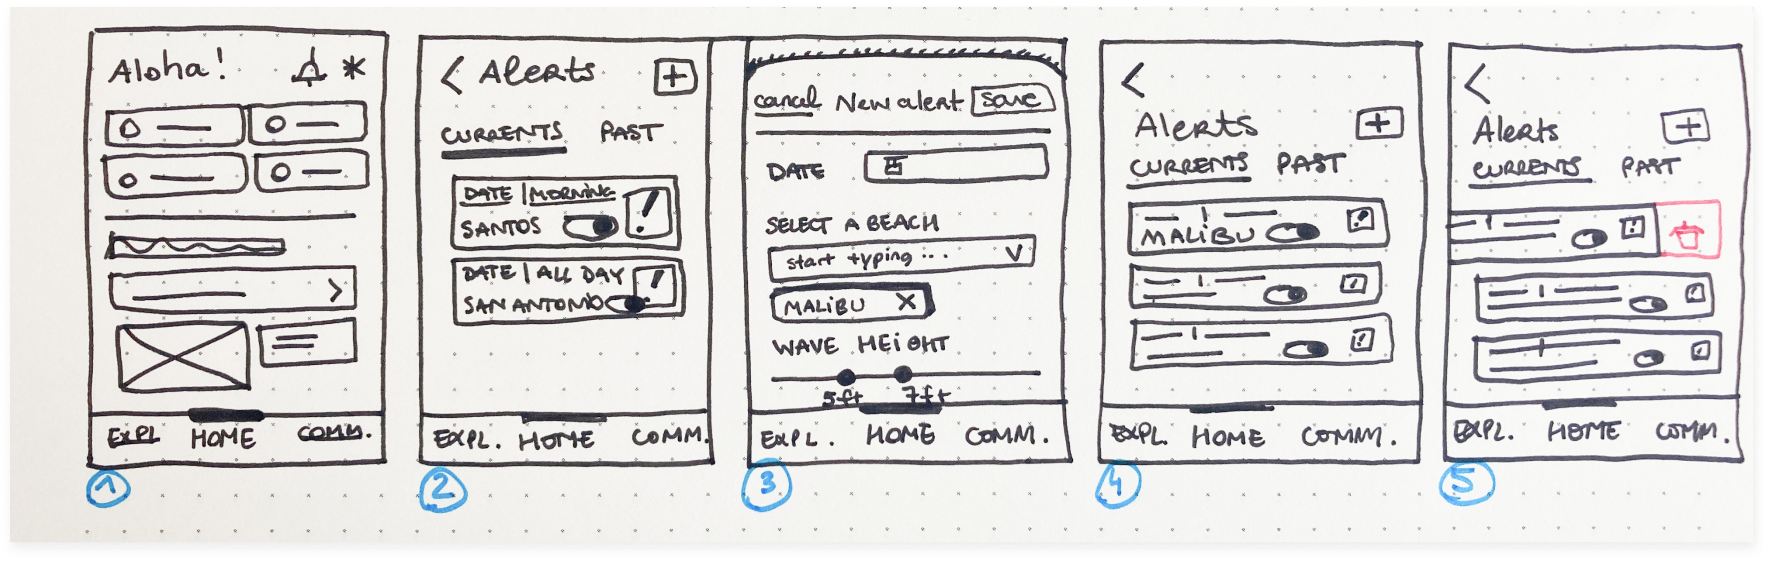 Aloha!
EXPL HOME COMM.
1
< Alerts +
CURRENTS PAST
DATE | MORNING
SANTOS !
DATE | ALL DAY
SAN ANTONIO !
EXPL. HOME COMM.
2
cancel New alert save
DATE
SELECT A BEACH
start typing ... V
MALIBU X
WAVE HEIGHT
5ft 7ft
EXPL. HOME COMM.
3
<
Alerts +
CURRENTS PAST
MALIBU !
!
!
EXPL. HOME COMM.
4
<
Alerts +
CURRENTS PAST
!
!
!
EXPL. HOME COMM.
5